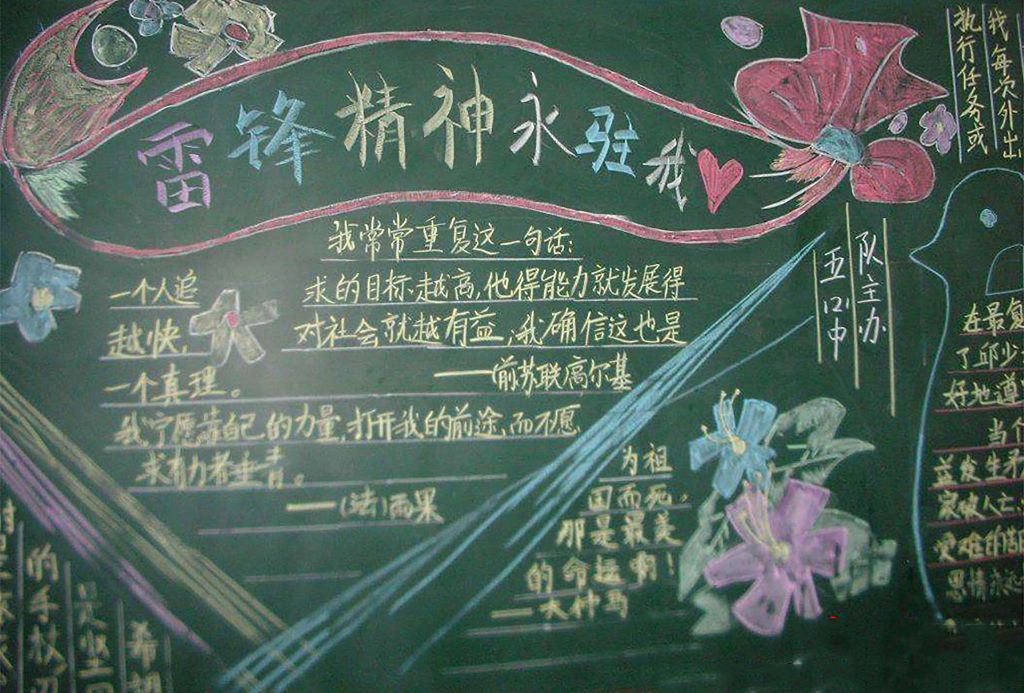 雷锋精神永驻我
我常常重复这一句话:
一个人追求的目标越高,他得能力就发展得
越快,对社会就越有益,我确信这也是
一个真理。
——(前苏联)高尔基
我宁愿靠自己的力量,打开我的前途,而不愿
求有力者垂青。
——(法)雨果
为祖
国而死,
那是最美
的命运啊!
——大仲马
五口中
队主办
我每次外出
执行任务或
在最复
了邱少
好地遵
当个
益发生矛
家破人亡
更难的
思情永远
的手杖
是坐
希望